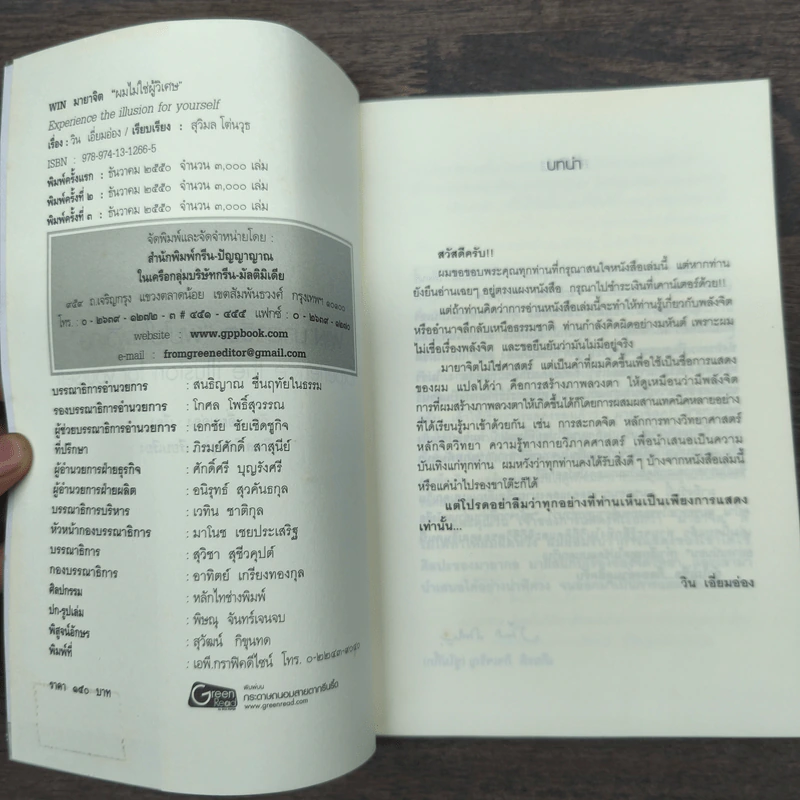 WIN มายาจิต "ผมไม่ใช่ผู้วิเศษ"
Experience the illusion for yourself
เรื่อง : วิน เอี่ยมอ่อง / เรียบเรียง : สุวิมล โต่นวุธ
ISBN : 978-974-13-1266-5
พิมพ์ครั้งแรก : ธันวาคม ๒๕๕๐ จำนวน ๓,๐๐๐ เล่ม
พิมพ์ครั้งที่ ๒ : ธันวาคม ๒๕๕๐ จำนวน ๓,๐๐๐ เล่ม
พิมพ์ครั้งที่ ๓ : ธันวาคม ๒๕๕๐ จำนวน ๓,๐๐๐ เล่ม
จัดพิมพ์และจัดจำหน่ายโดย :
สำนักพิมพ์กรีน-ปัญญาญาณ
ในเครือกลุ่มบริษัทกรีน-มัลติมีเดีย
๙๕๙ ถ.เจริญกรุง แขวงตลาดน้อย เขตสัมพันธวงศ์ กรุงเทพฯ ๑๐๑๐๐
โทร. : ๐ - ๒๖๓๙ - ๑๒๗๒ - ๓ # ๔๕๑ - ๔๕๕ แฟกซ์ : ๐ - ๒๖๓๙ -
website : www.gppbook.com
e-mail : fromgreeneditor@gmail.com
บรรณาธิการอำนวยการ : สนธิญาณ ชื่นฤทัยในธรรม
รองบรรณาธิการอำนวยการ : โกศล โพธิ์สุวรรณ
ผู้ช่วยบรรณาธิการอำนวยการ : เอกชัย ชัยเชิดชูกิจ
ที่ปรึกษา : ภิรมย์ศักดิ์ สาสุนีย์
ผู้อำนวยการฝ่ายธุรกิจ : ศักดิ์ศรี บุญรังศรี
ผู้อำนวยการฝ่ายผลิต : อนิรุทธ์ สุวคันธกุล
บรรณาธิการบริหาร : เวทิน ชาติกุล
หัวหน้ากองบรรณาธิการ : มาโนช เชยประเสริฐ
บรรณาธิการ : สุวิชา สุชีวคุปต์
กองบรรณาธิการ : อาทิตย์ เกรียงทองกุล
ศิลปกรรม : หลักไทช่างพิมพ์
ปก-รูปเล่ม : พิษณุ จันทร์เจนจบ
พิสูจน์อักษร : สุวัฒน์ กิขุนทด
พิมพ์ที่ : เอพี.กราฟิคดีไซน์ โทร. ๐-๒๒๔๓-
ราคา ๑๔๐ บาท
Green Read
พิมพ์บน
กระดาษถนอมสายตากรีนรี้ด
www.greenread.com
บทนำ
สวัสดีครับ!!
ผมขอขอบพระคุณทุกท่านที่กรุณาสนใจหนังสือเล่มนี้ แต่หากท่าน
ยังยืนอ่านเฉยๆ อยู่ตรงแผงหนังสือ กรุณาไปชำระเงินที่เคาน์เตอร์ด้วย!!
แต่ถ้าท่านคิดว่าการอ่านหนังสือเล่มนี้จะทำให้ท่านรู้เกี่ยวกับพลังจิต
หรืออำนาจลึกลับเหนือธรรมชาติ ท่านกำลังคิดผิดอย่างมหันต์ เพราะผม
ไม่เชื่อเรื่องพลังจิต และขอยืนยันว่ามันไม่มีอยู่จริง
มายาจิตไม่ใช่ศาสตร์ แต่เป็นคำที่ผมคิดขึ้นเพื่อใช้เป็นชื่อการแสดง
ของผม แปลได้ว่า คือการสร้างภาพลวงตา ให้ดูเหมือนว่ามีพลังจิต
การที่ผมสร้างภาพลวงตาให้เกิดขึ้นได้ก็โดยการผสมผสานเทคนิคหลายอย่าง
ที่ได้เรียนรู้มาเข้าด้วยกัน เช่น การสะกดจิต หลักการทางวิทยาศาสตร์
หลักจิตวิทยา ความรู้ทางกายวิภาคศาสตร์ เพื่อนำเสนอเป็นความ
บันเทิงแก่ทุกท่าน ผมหวังว่าทุกท่านคงได้รับสิ่งดีๆ บ้างจากหนังสือเล่มนี้
หรือแค่นำไปรองขาโต๊ะก็ได้
แต่โปรดอย่าลืมว่าทุกอย่างที่ท่านเห็นเป็นเพียงการแสดง
เท่านั้น...
วิน เอี่ยมอ่อง